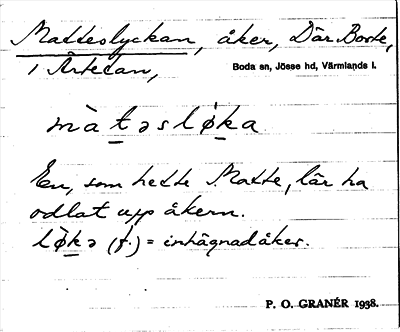 Matteslyckan, åker, Där Borte,
i Årtetan,
Boda sn, Jösse hd, Värmlands l.
màt̲əsløk̲a
En, som hette Matte, lär ha
odlat upp åkern.
lø̀k̲ə (f.) = inhägnad åker.
P. O. GRANÉR 1938.